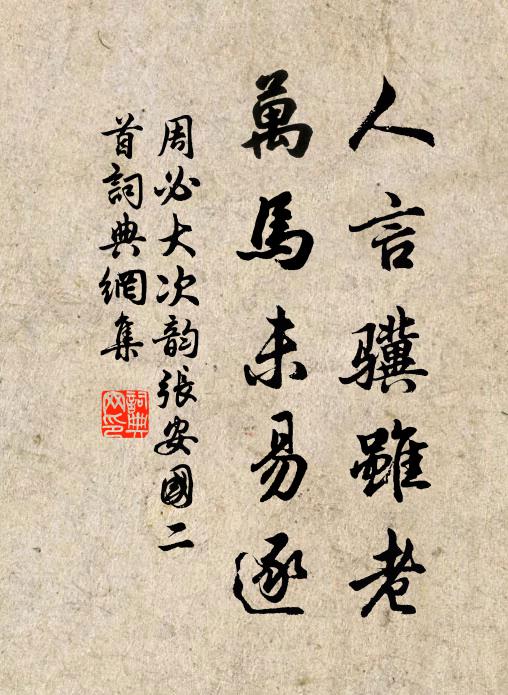 人言驥雖老
萬馬未易逐
周必大次韵張安國二
首詞典網集
詞典网印